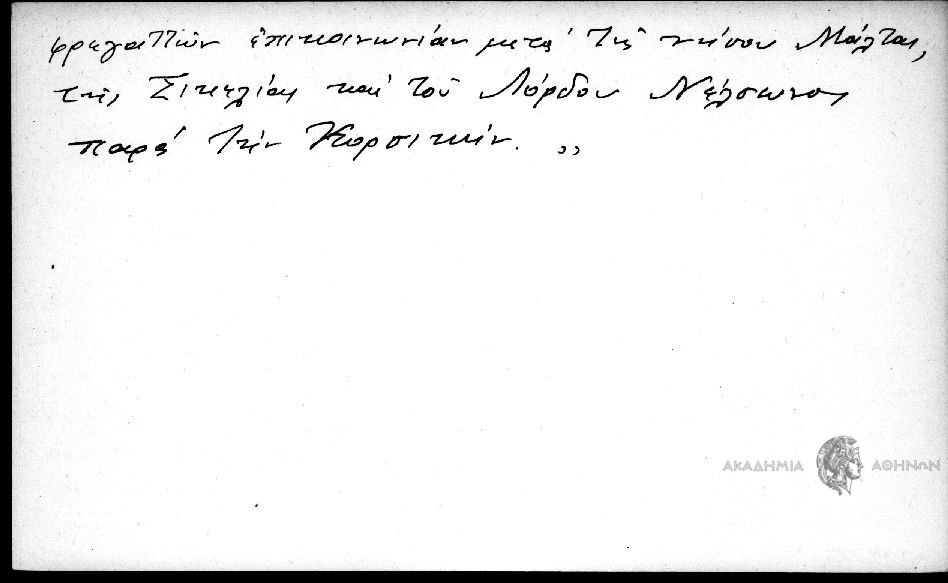 φρεγαττῶν ἐπικοινωνίαν μετὰ τῆς νήσου Μάλτας,
τῆς Σικελίας καὶ τοῦ Λόρδου Νέλσωνος
παρὰ τὴν Κορσικήν. ,,
ΑΚΑΔΗΜΙΑ ΑΘΗΝΩΝ